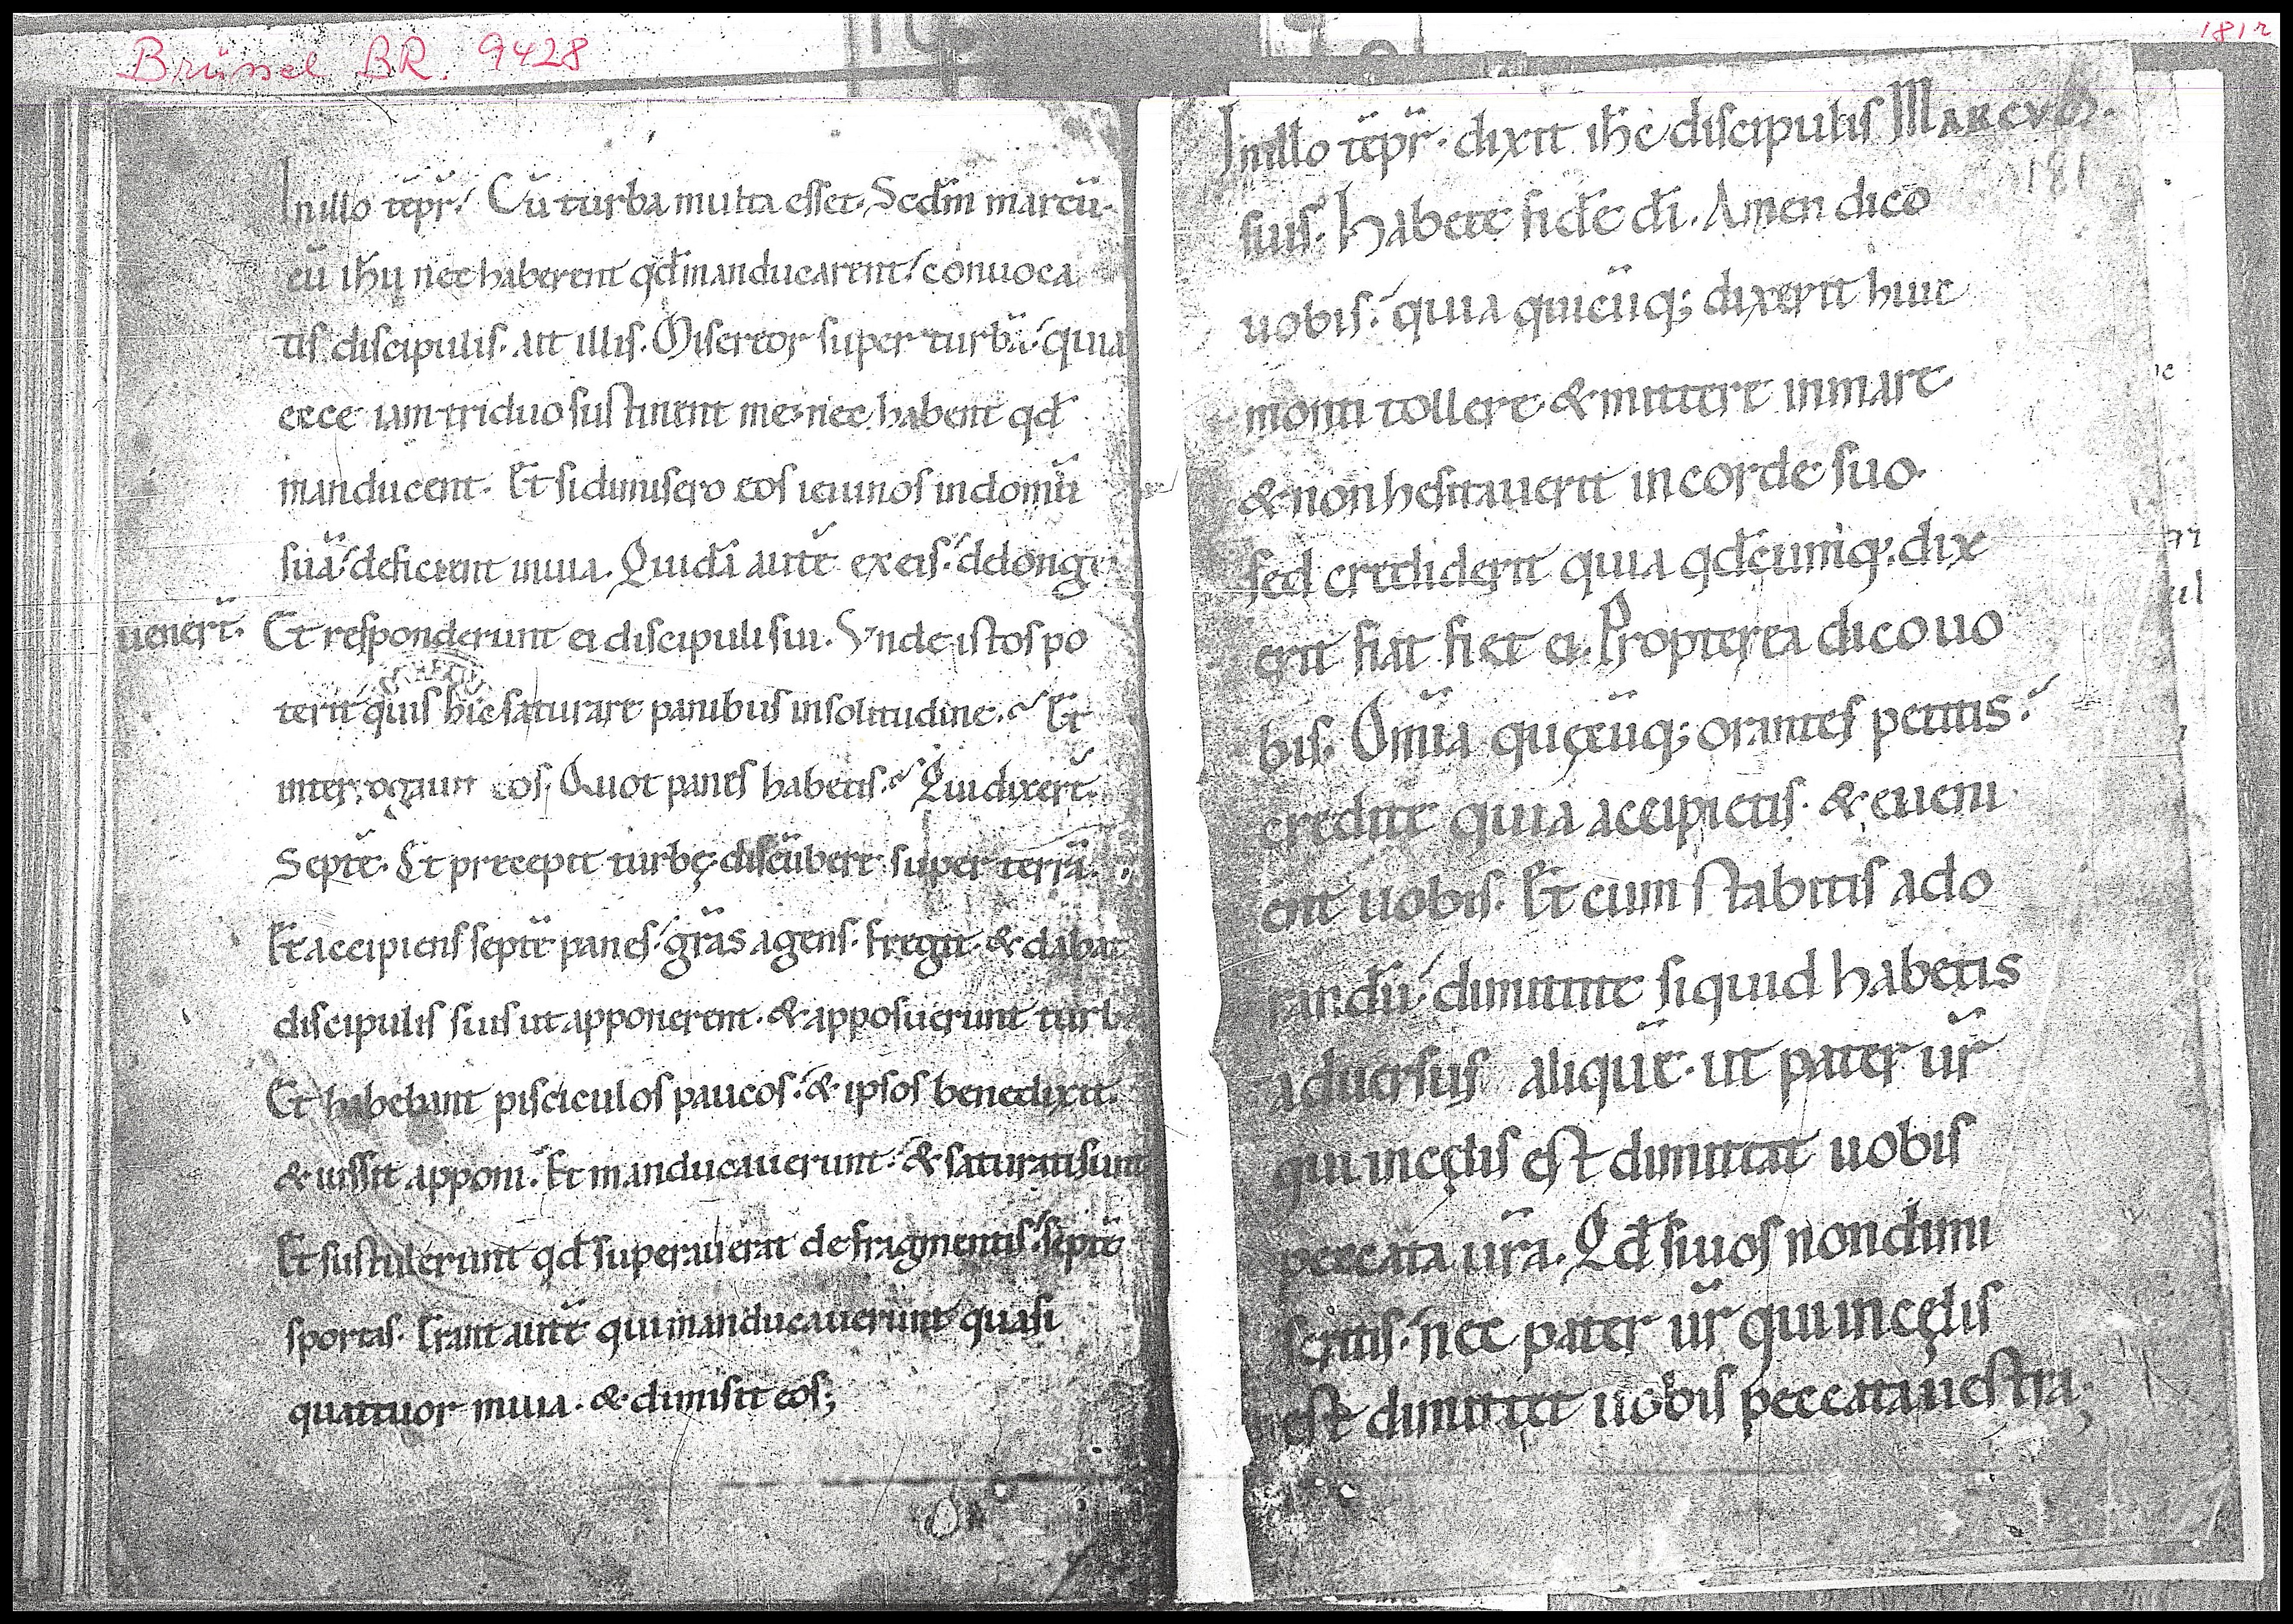 Brüssel BR. 9428
181r
In illo tēpr̄. Cū turba multa esset. Scdm̄ marcū.
cū ihu nec haberent qd̄ manducarent. conuoca
tis discipulis. ait illis. Misereor super turbā. quia
ecce iam triduo sustinent me. nec habent qd̄
manducent. Et si dimisero eos ieiunos in domū
suā. deficient in uia. Quidā autē ex eis. de longe
uenert̄. Et responderunt ei discipuli sui. Vnde istos po
terit quis hic saturare panibus in solitudine. Et
interrogauit eos. Quot panes habetis. Qui dixert̄.
Septē. Et precepit turbę discūbere super terrā.
Et accipiens septē panes. grās agens. fregit. & dabat
discipulis suis ut apponerent. & apposuerunt turb
Et habebant pisciculos paucos. & ipsos benedixit.
& iussit apponi. Et manducauerunt. & saturati sunt
Et sustulerunt qd̄ superauerat de fragmentis. septē
sportas. Erant autē qui manducauerunt quasi
quattuor milia. & dimisit eos;
In illo tēpr̄. dixit ihc̄ discipulis MARCVS.
181
suis. Habete fidē dī. Amen dico
uobis. quia quicūq; dixerit huic
monti tollere & mittere in mare.
& non hesitauerit in corde suo.
sed crediderit quia qd̄cumq; dix
erit fiat fiet ei. Propterea dico uo
bis. Om̄ia quęcūq; orantes petitis.
credite quia accipietis. & eueni
ent uobis. Et cum stabitis ado
randū. dimittite si quid habetis
aduersus aliquē. ut pater ur̄
qui in cęlis est dimittat uobis
peccata ur̄a. Qd̄ si uos non dimi
seritis. nec pater ur̄ qui in cęlis
est dimittet uobis peccata uestra;